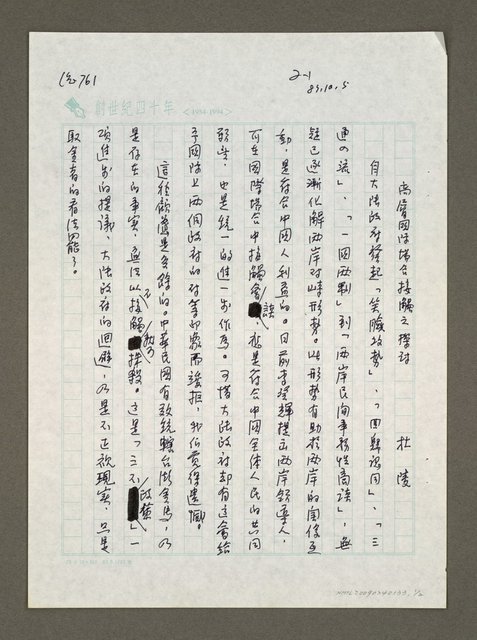 2-1
84.10.5
創世紀四十年 <1954-1994>
兩會國際場合接觸之探討
杜陵
自大陸政府發起「笑臉攻勢」、「回歸祖國」、「三
通四流」、「一國兩制」到「兩岸民間事務性商談」,無
疑已逐漸化解兩岸對峙形勢。此形勢有助於兩岸的關係互
動,是符合中國人利益的。日前李登輝提出兩岸領導人,
可在國際場合中接觸會談,想是符合中國全體人民的共同
期望,也是統一的進一步作為。可惜大陸政府卻有這會給
予國際上兩個政府的對等印象而峻拒,我們覺得遺憾。
這種顧慮是多餘的。中華民國有效統轄台澎金馬,乃
是存在的事實,無從以不接觸為抹殺。這是「三不政策」一
項進步的提議,大陸政府的迴避,乃是不正視現實,只是
取金者的看法罷了。
NMTL20090240133, 1/2